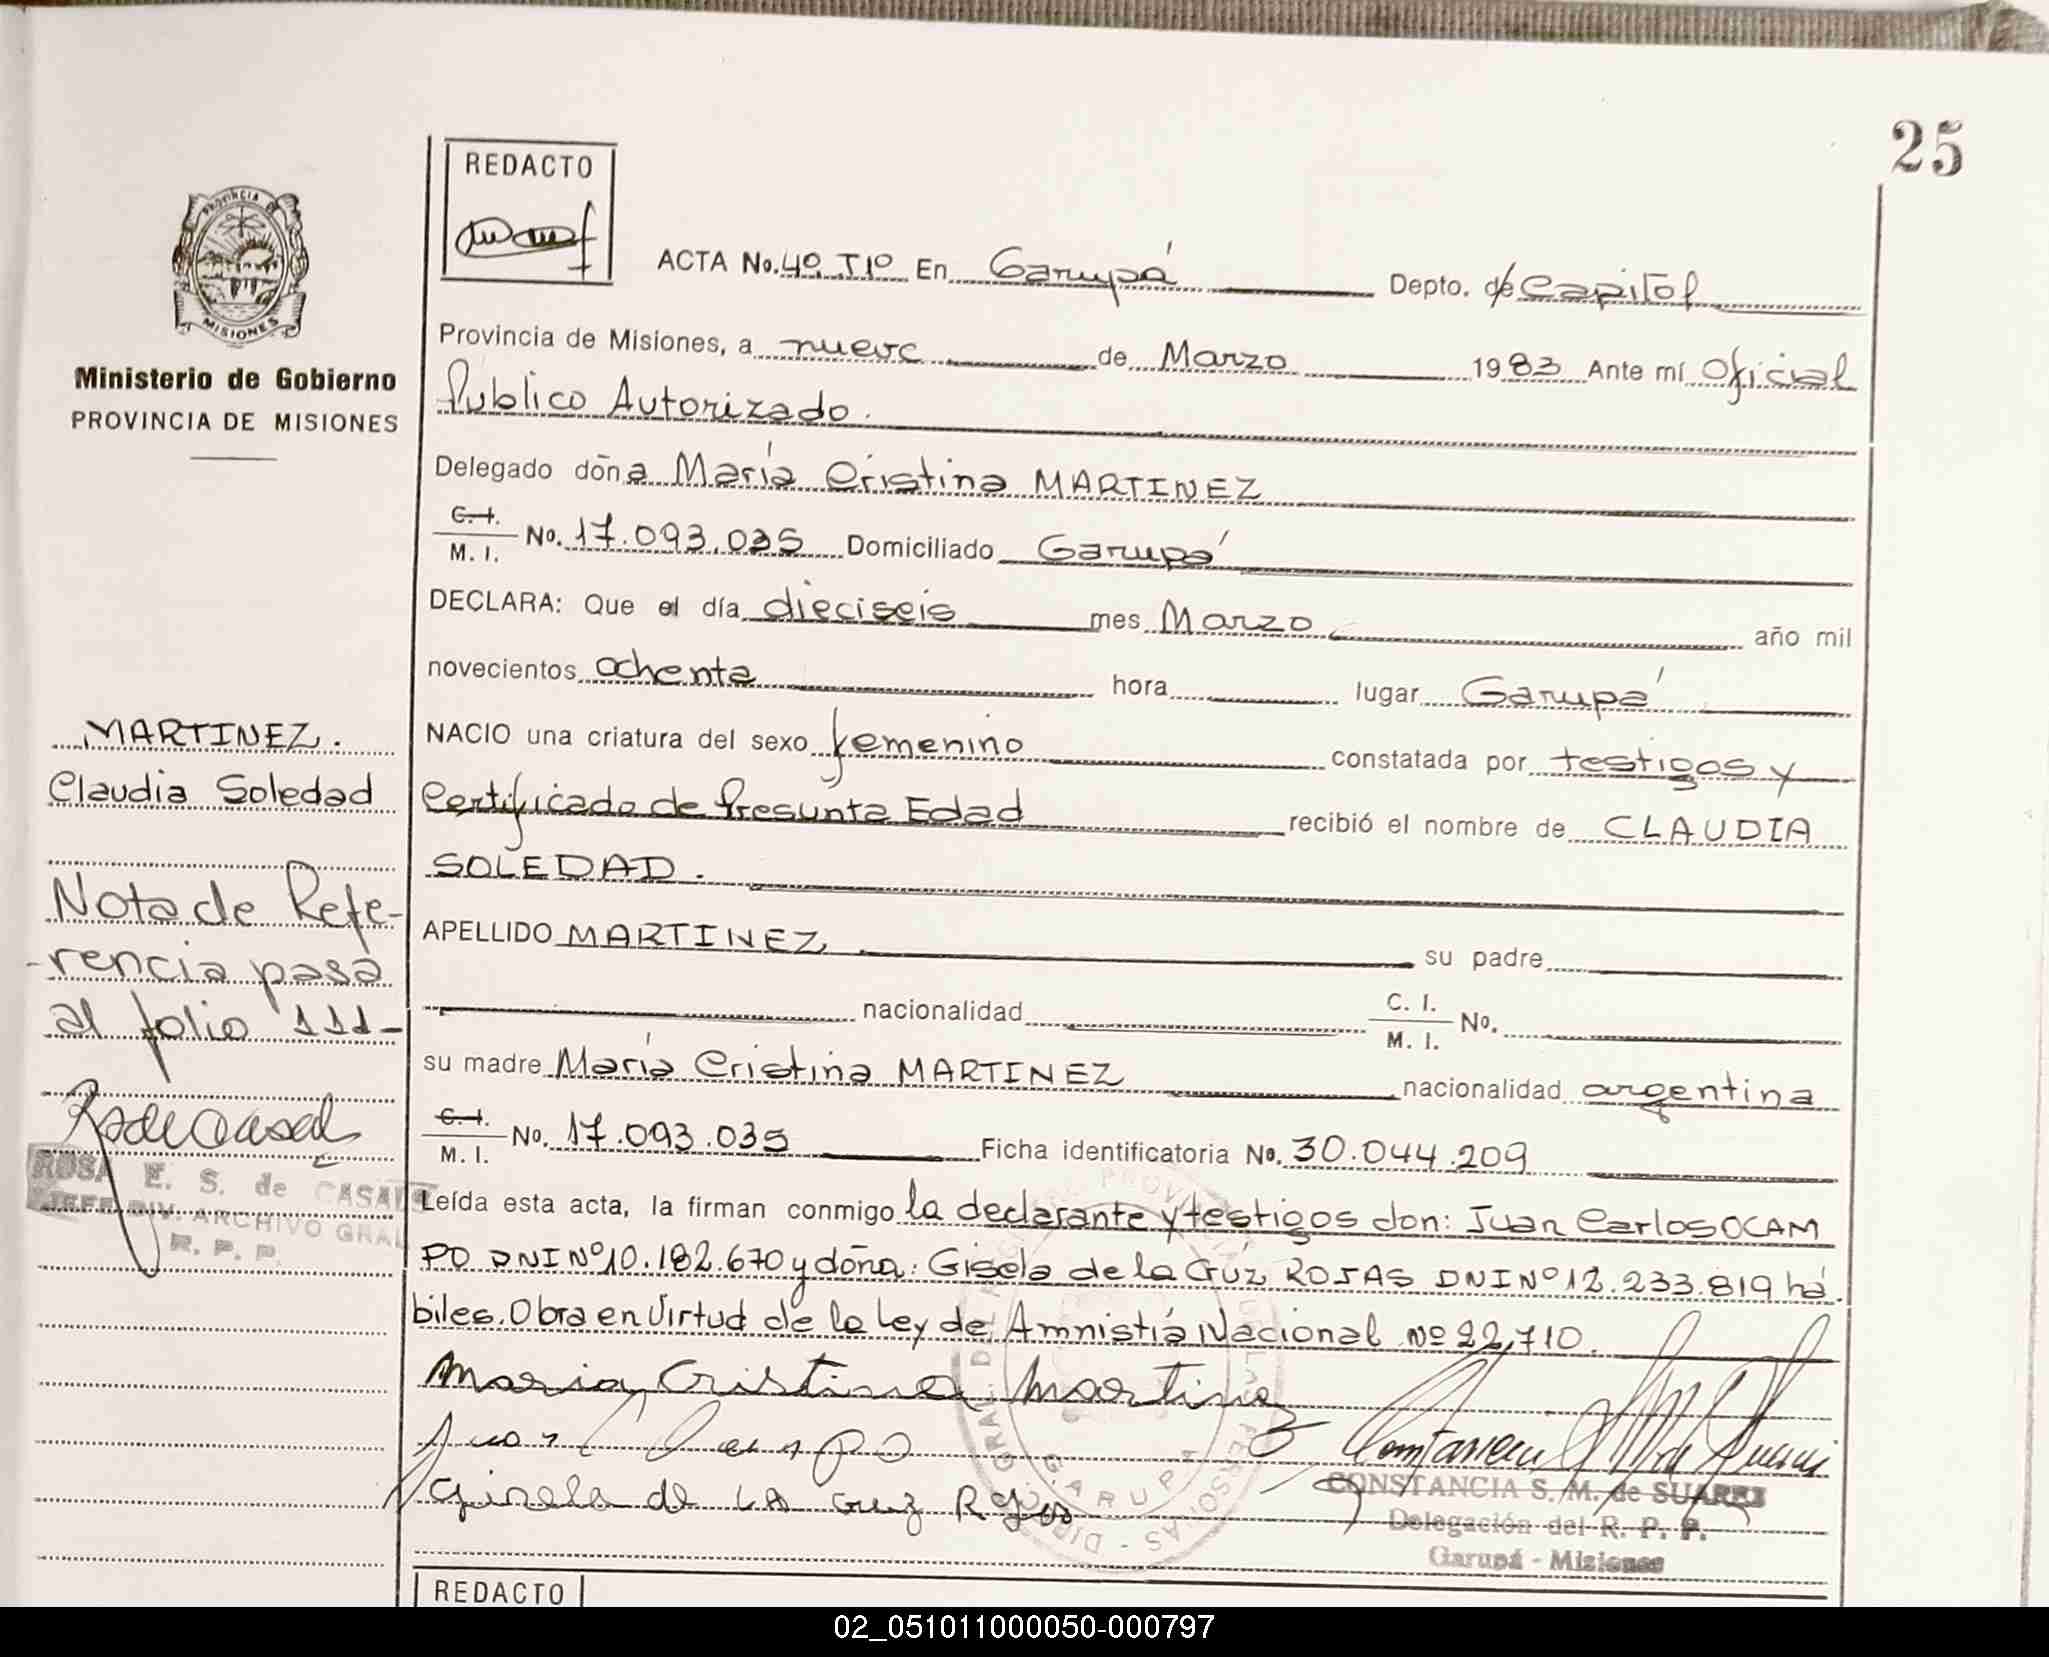 25
REDACTO
ACTA No. 40 T1º En Garupá Depto. de Capital
PROVINCIA DE
MISIONES
Provincia de Misiones, a nueve de Marzo 1983 Ante mí Oficial
Ministerio de Gobierno
PROVINCIA DE MISIONES
Publico Autorizado.
Delegado doña María Cristina MARTINEZ
C. I.
M. I. No. 17.093.035 Domiciliado Garupá
DECLARA: Que el día dieciseis mes Marzo año mil
novecientos ochenta hora lugar Garupá
MARTINEZ.
NACIO una criatura del sexo femenino constatada por testigos y
Claudia Soledad
Certificado de Presunta Edad recibió el nombre de CLAUDIA
SOLEDAD.
Nota de Refe-
-rencia pasa
al folio 111-
APELLIDO MARTINEZ su padre
nacionalidad C. I.
M. I. No.
su madre María Cristina MARTINEZ nacionalidad argentina
C. I.
M. I. No. 17.093.035 Ficha identificatoria No. 30.044.209
ROSA E. S. de CASALS
JEFE DIV. ARCHIVO GRAL
R. P. P.
Leída esta acta, la firman conmigo la declarante y testigos don: Juan Carlos OCAM
PO DNI Nº 10.182.670 y doña: Gisela de la Cruz ROJAS DNI Nº 12.233.819 há
biles. Obra en Virtud de la Ley de Amnistía Nacional Nº 22,710.
Maria Cristina Martinez
Juan C Ocampo
Gisela de la Cruz Rojas
GARUPA
CONSTANCIA S. M. de SUAREZ
Delegación del R. P. P.
Garupá - Misiones
REDACTO
02_051011000050-000797